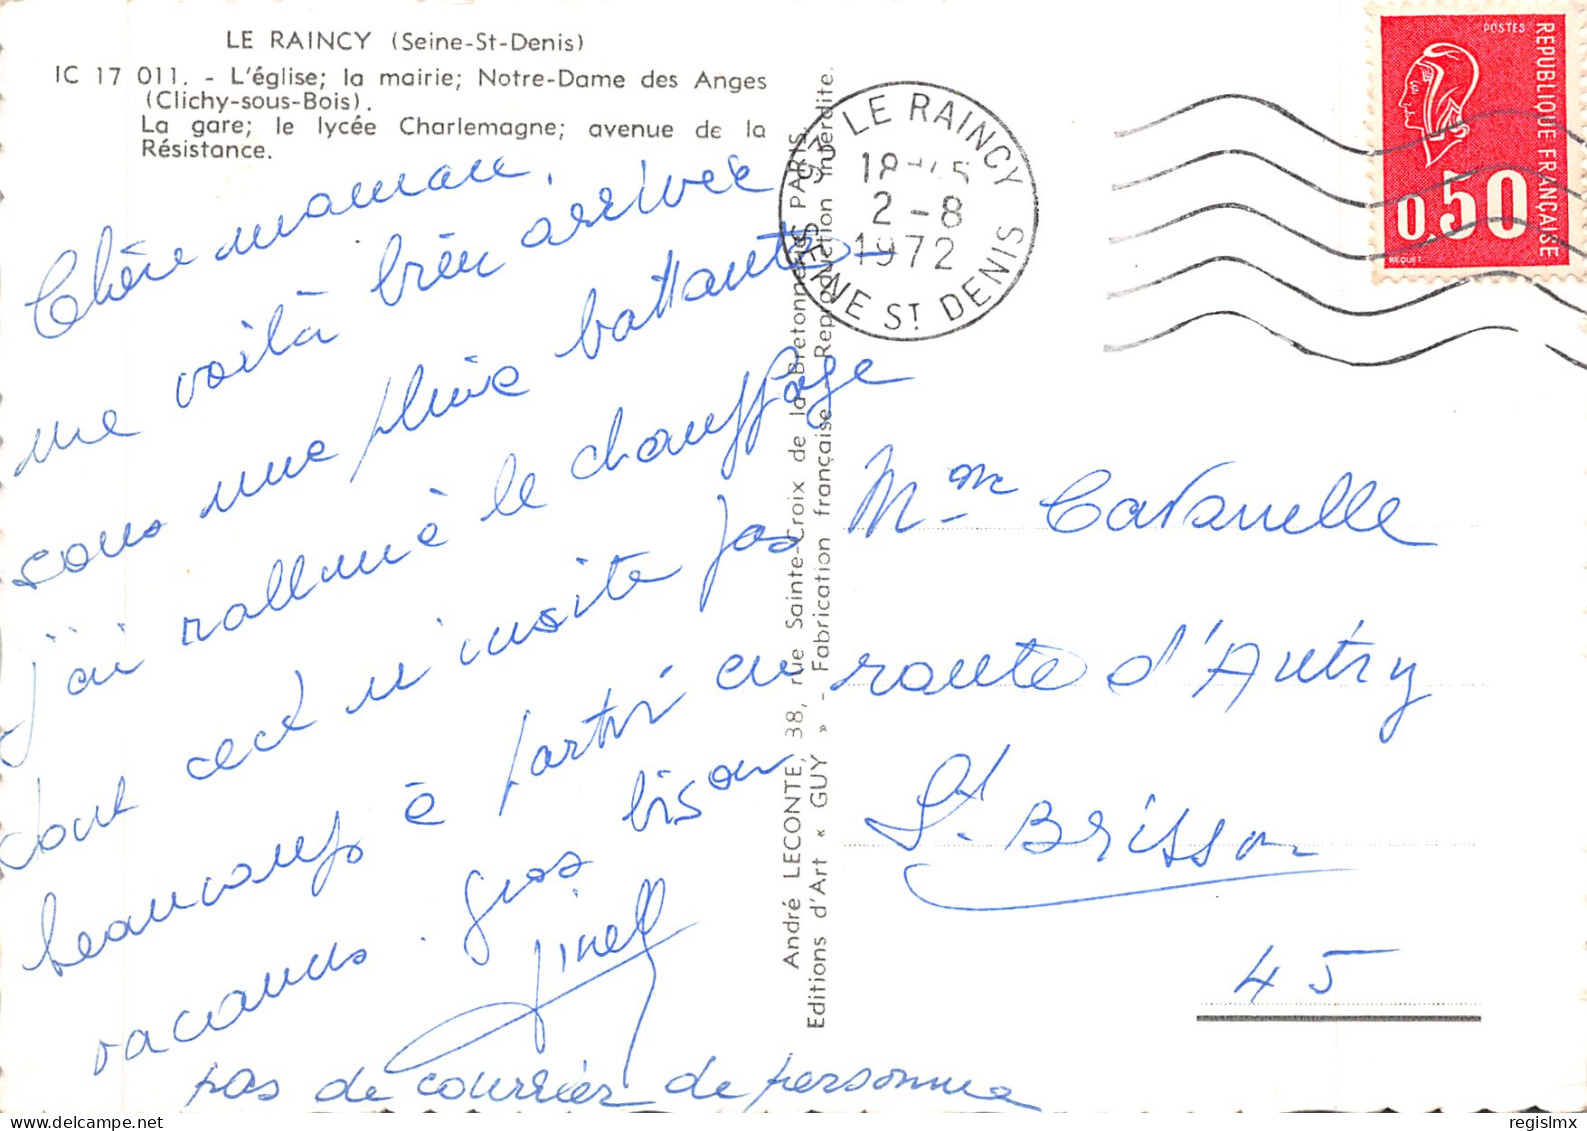 LE RAINCY (Seine-St-Denis)
IC 17 011. - L'église; la mairie; Notre-Dame des Anges
(Clichy-sous-Bois).
La gare; le lycée Charlemagne; avenue de la
Résistance.
Chère maman,
me voilà bien arrivée
sous une pluie battante
j'ai rallumé le chauffage
dont ceci n'incite pas
beaucoup à partir en
vacances. gros bison
pas de courrier de personne
André LECONTE, 38, rue Sainte-Croix de la Bretonnerie PARIS.
Editions d'Art « GUY » - Fabrication française - Reproduction interdite.
93 LE RAINCY
2 - 8
1972
SEINE ST DENIS
POSTES
REPUBLIQUE FRANÇAISE
0,50
BEQUET
Mme Cavanelle
route d'Autry
St. Brisson
45
www.delcampe.net
regislmx